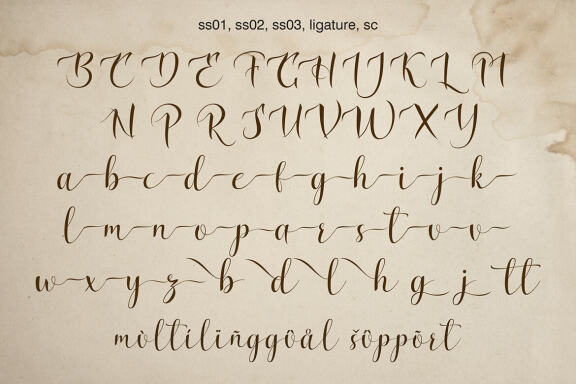 ss01, ss02, ss03, ligature, sc
B C D E F G H I J K L M
N P R S U V W X Y
a b c d e f g h i j k
l m n o p a r s t o v
w x y z b d l h g j tt
mòltílïñggöål šöppõrt